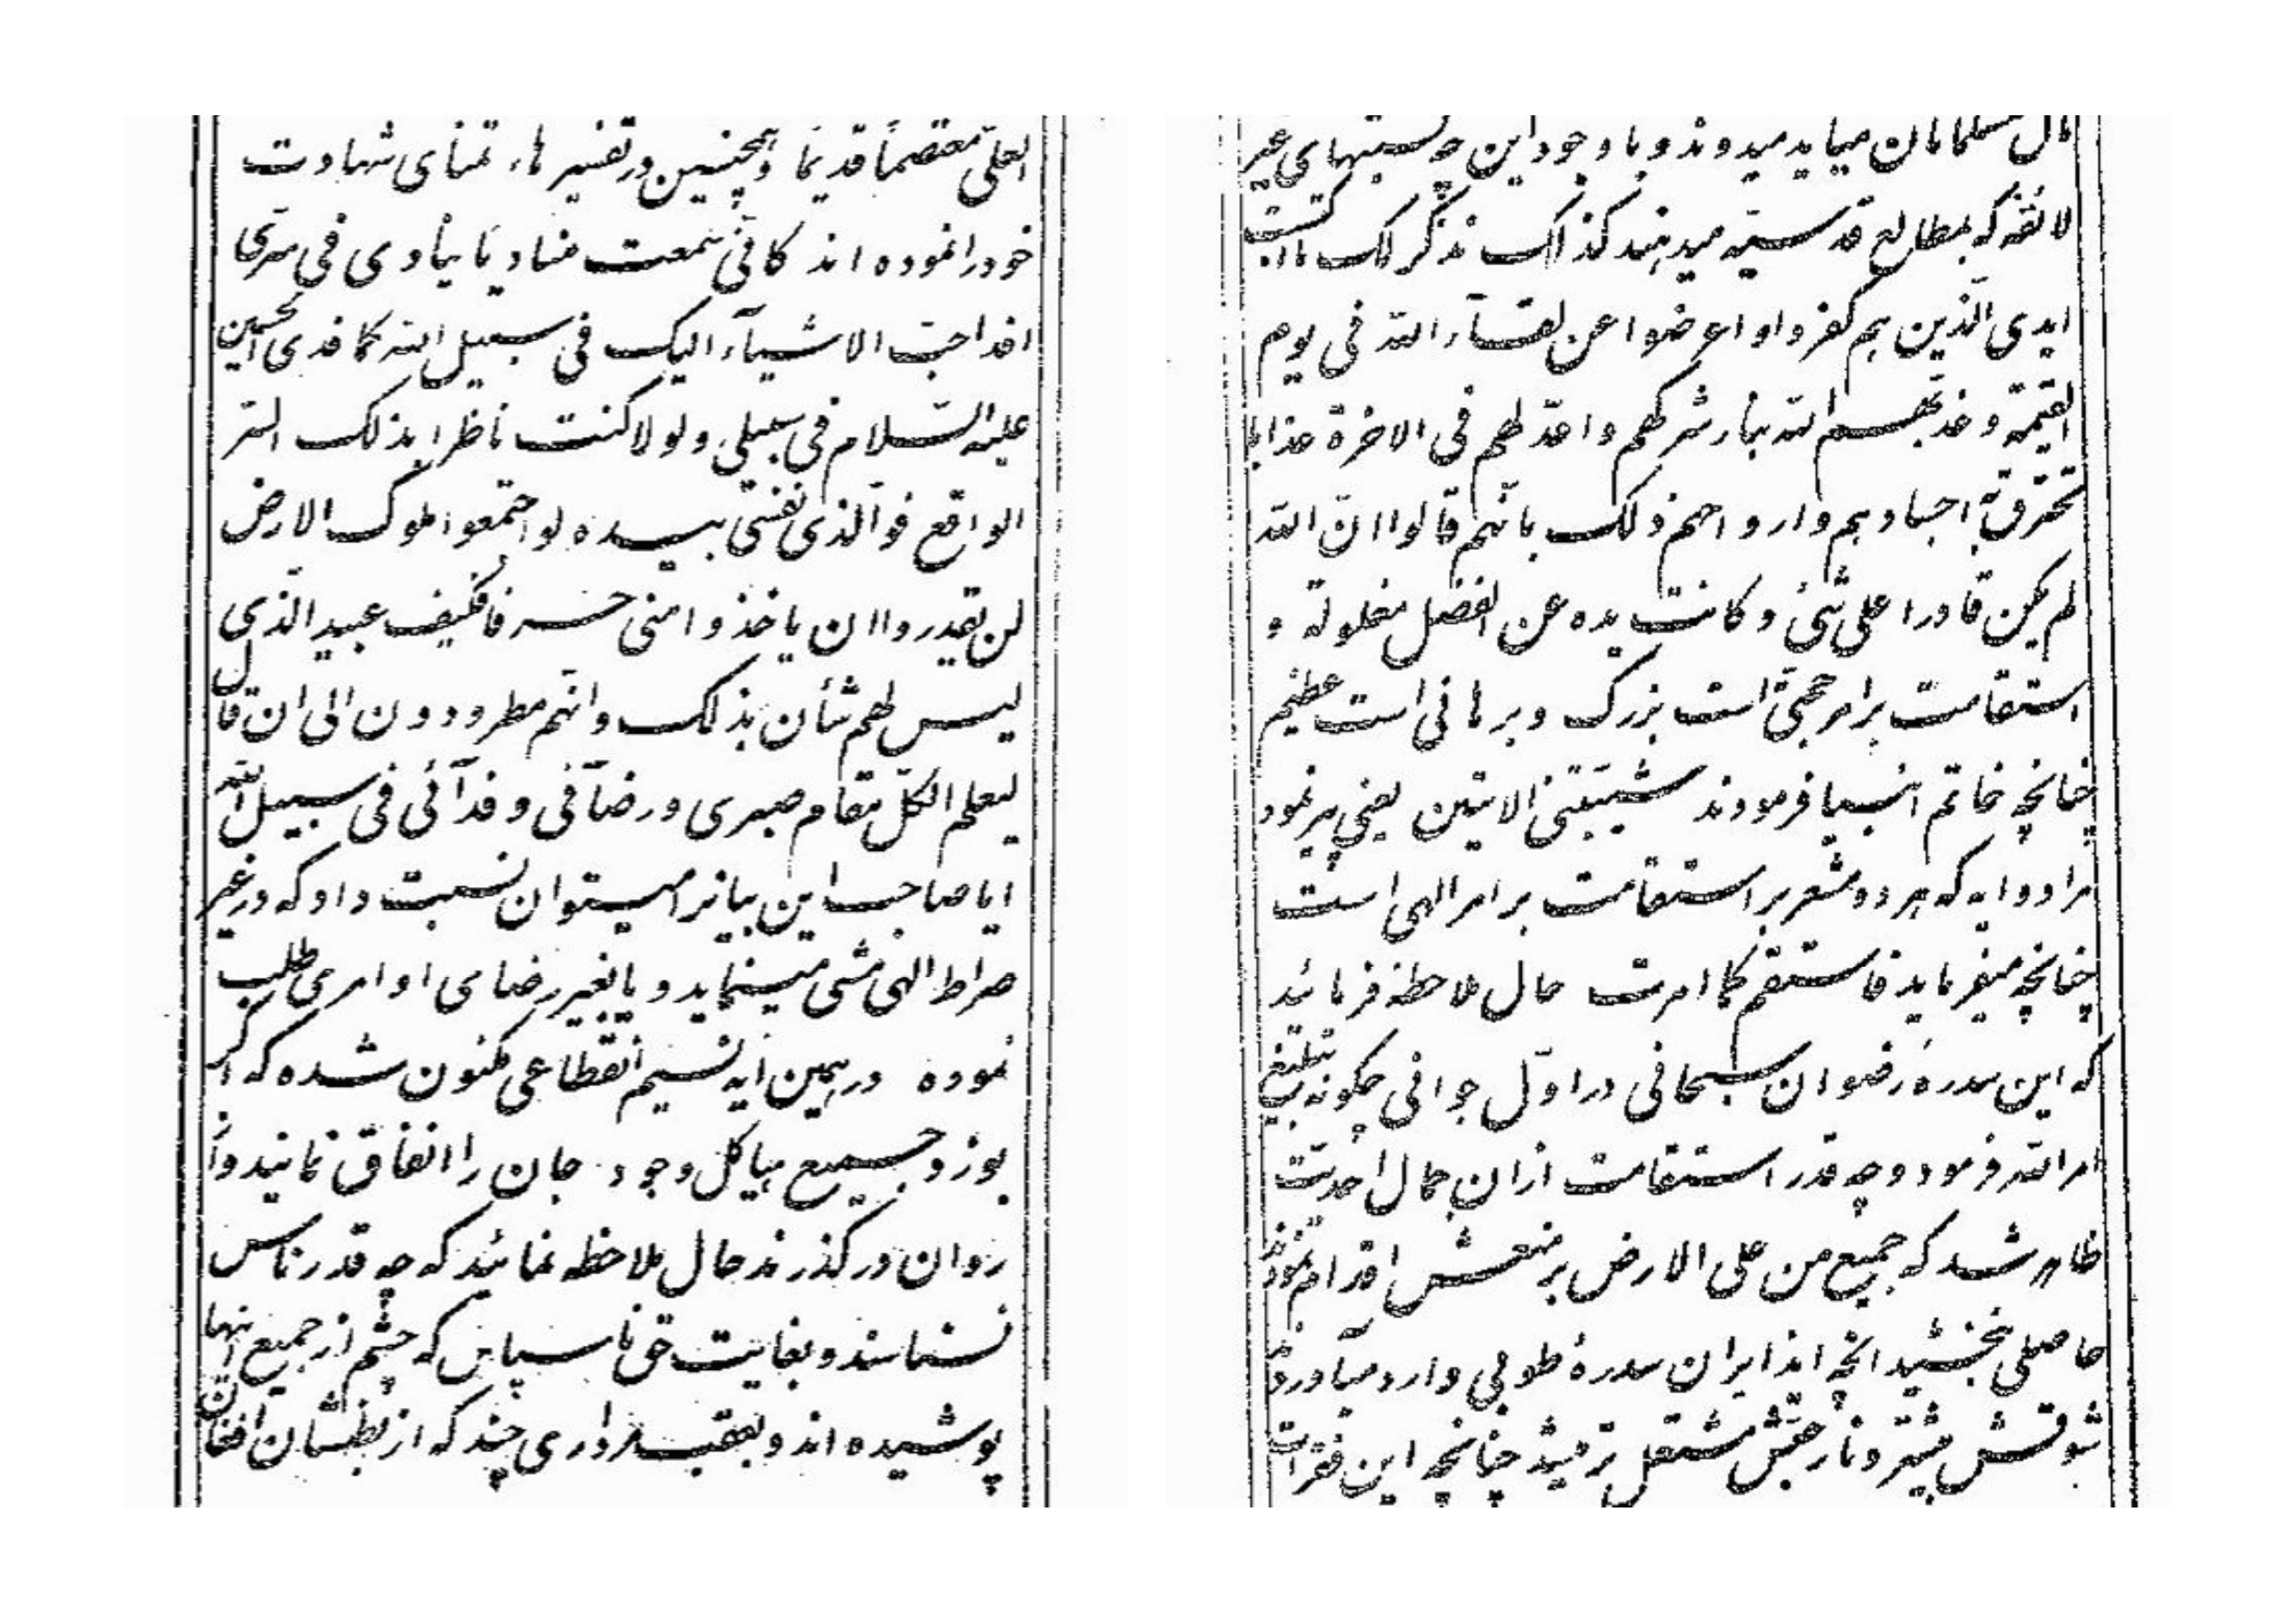 مال مسلمانان میاید میدوند و با وجود این چه نسبتهای غیر
لائقه که بمطالع قدسیه میدهند کذلک نذکر لک ما اکتسبت
ایدی الذین هم کفروا و اعرضوا عن لقآء الله فی یوم
القیمة و عذبهم الله بنار شرکهم و اعد لهم فی الاخرة عذابا
تحترق به اجسادهم و ارواحهم ذلک بانهم قالوا ان الله
لم یکن قادرا علی شئ و کانت یده عن الفضل مغلولة و
استقامت بر امر حجتی است بزرگ و برهانی است عظیم
چنانچه خاتم انبیا فرمودند شیبتنی الایتین یعنی پیر نمود
مرا دو ایه که هر دو مشعر بر استقامت بر امر الهی است
چنانچه میفرماید فاستقم کما امرت حال ملاحظه فرمائید
که این سدرهٔ رضوان سبحانی در اول جوانی چگونه تبلیغ
امر الله فرمود و چه قدر استقامت از ان جمال احدیت
ظاهر شد که جمیع من علی الارض بر منعش اقدام نمودند
حاصلی نبخشید انچه ایذا بران سدرهٔ طوبی وارد میاوردند
شوقش بیشتر و نار حبش مشتعل تر میشد چنانچه این فقرات
العلی معتصما قدیما و همچنین در تفسیر هاء تمنای شهادت
خود را نموده اند کانی سمعت منادیا ینادی فی سری
افد احب الاشیآء الیک فی سبیل الله کما فدی الحسین
علیه السلام فی سبیلی و لو لا کنت ناظرا بذلک السر
الواقع فو الذی نفسی بیده لو اجتمعوا ملوک الارض
لن یقدروا ان یاخذوا منی حرفا فکیف عبید الذی
لیس لهم شأن بذلک و انهم مطرودون الی ان قال
لیعلم الکل مقام صبری و رضائی و فدآئی فی سبیل الله
ایا صاحب این بیانرا میتوان نسبت داد که در غیر
صراط الهی مشی مینماید و یا بغیر رضای او امری طلب
نموده در همین ایه نسیم انقطاعی مکنون شده که اگر
بوزد جمیع هیاکل وجود جان را انفاق نمایند و از
روان در گذرند حال ملاحظه نمائید که چه قدر ناس
نسناسند و بغایت حق ناسپاس که چشم از جمیع اینها
پوشیده اند و بعقب مرداری چند که از بطنشان افغان